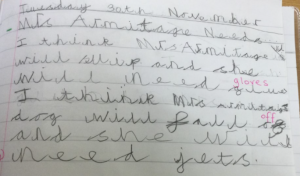 Tuesday 30th November
Mrs Armitage Needs
I think Mrs Armitage
will slip and she
will need gluvs
gloves
I think Mrs armitage
dog will fall of
off
and she will
need jets.